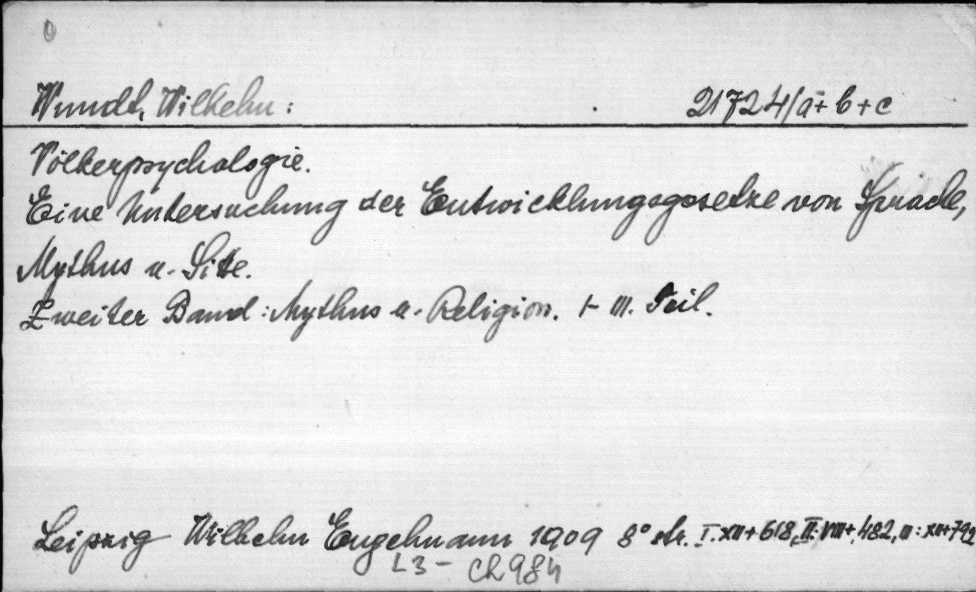 Wundt, Wilhelm: 21724/a+b+c
Völkerpsychologie.
Eine Untersuchung der Entwicklungsgesetze von Sprache,
Mythus u. Sitte.
Zweiter Band: Mythus u. Religion. I- III. Teil.
Leipzig Wilhelm Engelmann 1909 8° str. I. XII+618, II: VIII+482, III: XII+792
L3 - Ch 984